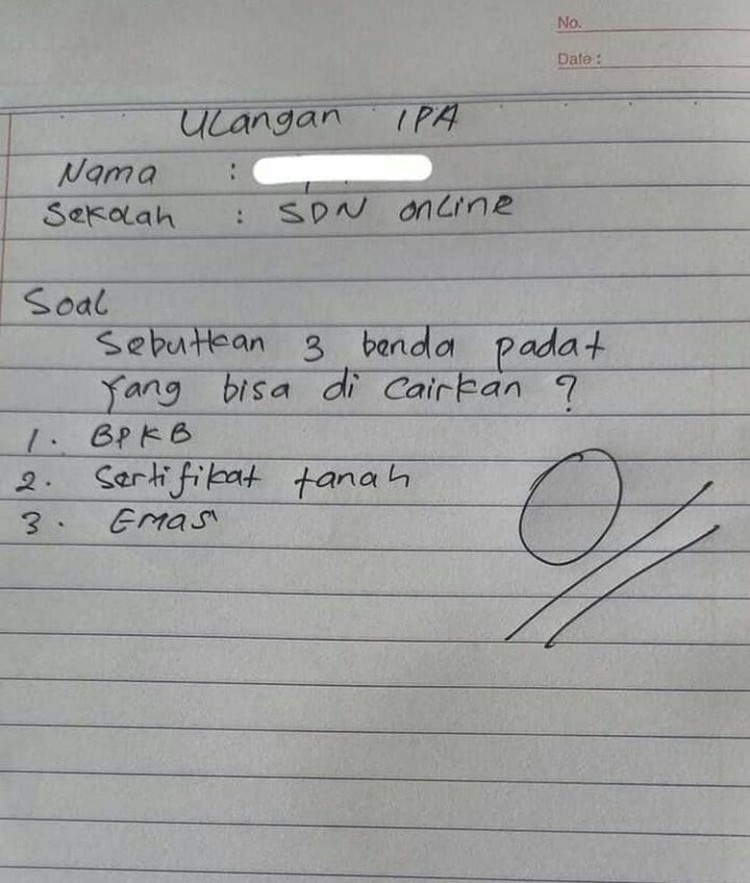 No.
Date :
Ulangan IPA
Nama :
Sekolah : SDN online
Soal
Sebutkan 3 benda padat
yang bisa di cairkan ?
1. BPKB
2. Sertifikat tanah
3. Emas
0